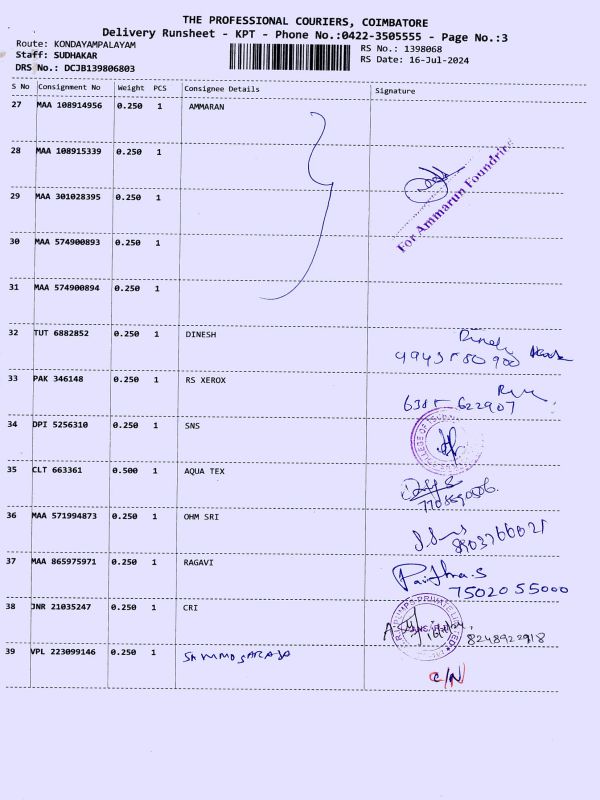 THE PROFESSIONAL COURIERS, COIMBATORE
Delivery Runsheet - KPT - Phone No.:0422-3505555 - Page No.:3
Route: KONDAYAMPALAYAM
Staff: SUDHAKAR
DRS No.: DCJB139806803
RS No.: 1398068
RS Date: 16-Jul-2024
S No Consignment No Weight PCS Consignee Details Signature
27 MAA 108914956 0.250 1 AMMARAN
28 MAA 108915339 0.250 1
29 MAA 301028395 0.250 1
For Ammarun Foundries
30 MAA 574900893 0.250 1
31 MAA 574900894 0.250 1
32 TUT 6882852 0.250 1 DINESH
33 PAK 346148 0.250 1 RS XEROX
34 DPI 5256310 0.250 1 SNS
35 CLT 663361 0.500 1 AQUA TEX
36 MAA 571994873 0.250 1 OHM SRI
37 MAA 865975971 0.250 1 RAGAVI
75020 55000
38 JNR 21035247 0.250 1 CRI
8248922918
39 VPL 223099146 0.250 1
C/N